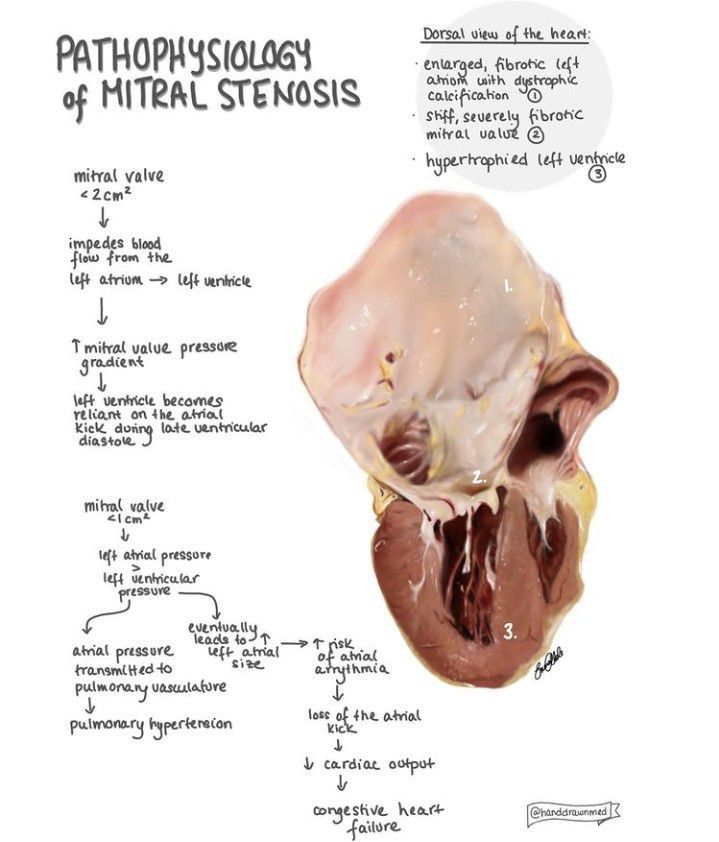 PATHOPHYSIOLOGY
of MITRAL STENOSIS
Dorsal view of the heart:
· enlarged, fibrotic left
atrium with dystrophic
calcification ①
· stiff, severely fibrotic
mitral valve ②
· hypertrophied left ventricle
③
mitral valve
< 2 cm²
↓
impedes blood
flow from the
left atrium → left ventricle
↓
↑ mitral valve pressure
gradient
↓
left ventricle becomes
reliant on the atrial
kick during late ventricular
diastole
mitral valve
<1cm²
↓
left atrial pressure
>
left ventricular
pressure
atrial pressure
transmitted to
pulmonary vasculature
↓
pulmonary hypertension
eventually
leads to ↑
left atrial
size
→ ↑ risk
of atrial
arrythmia
↓
loss of the atrial
kick
↓
↓ cardiac output
↓
congestive heart
failure
1.
2.
3.
@handdrawnmed